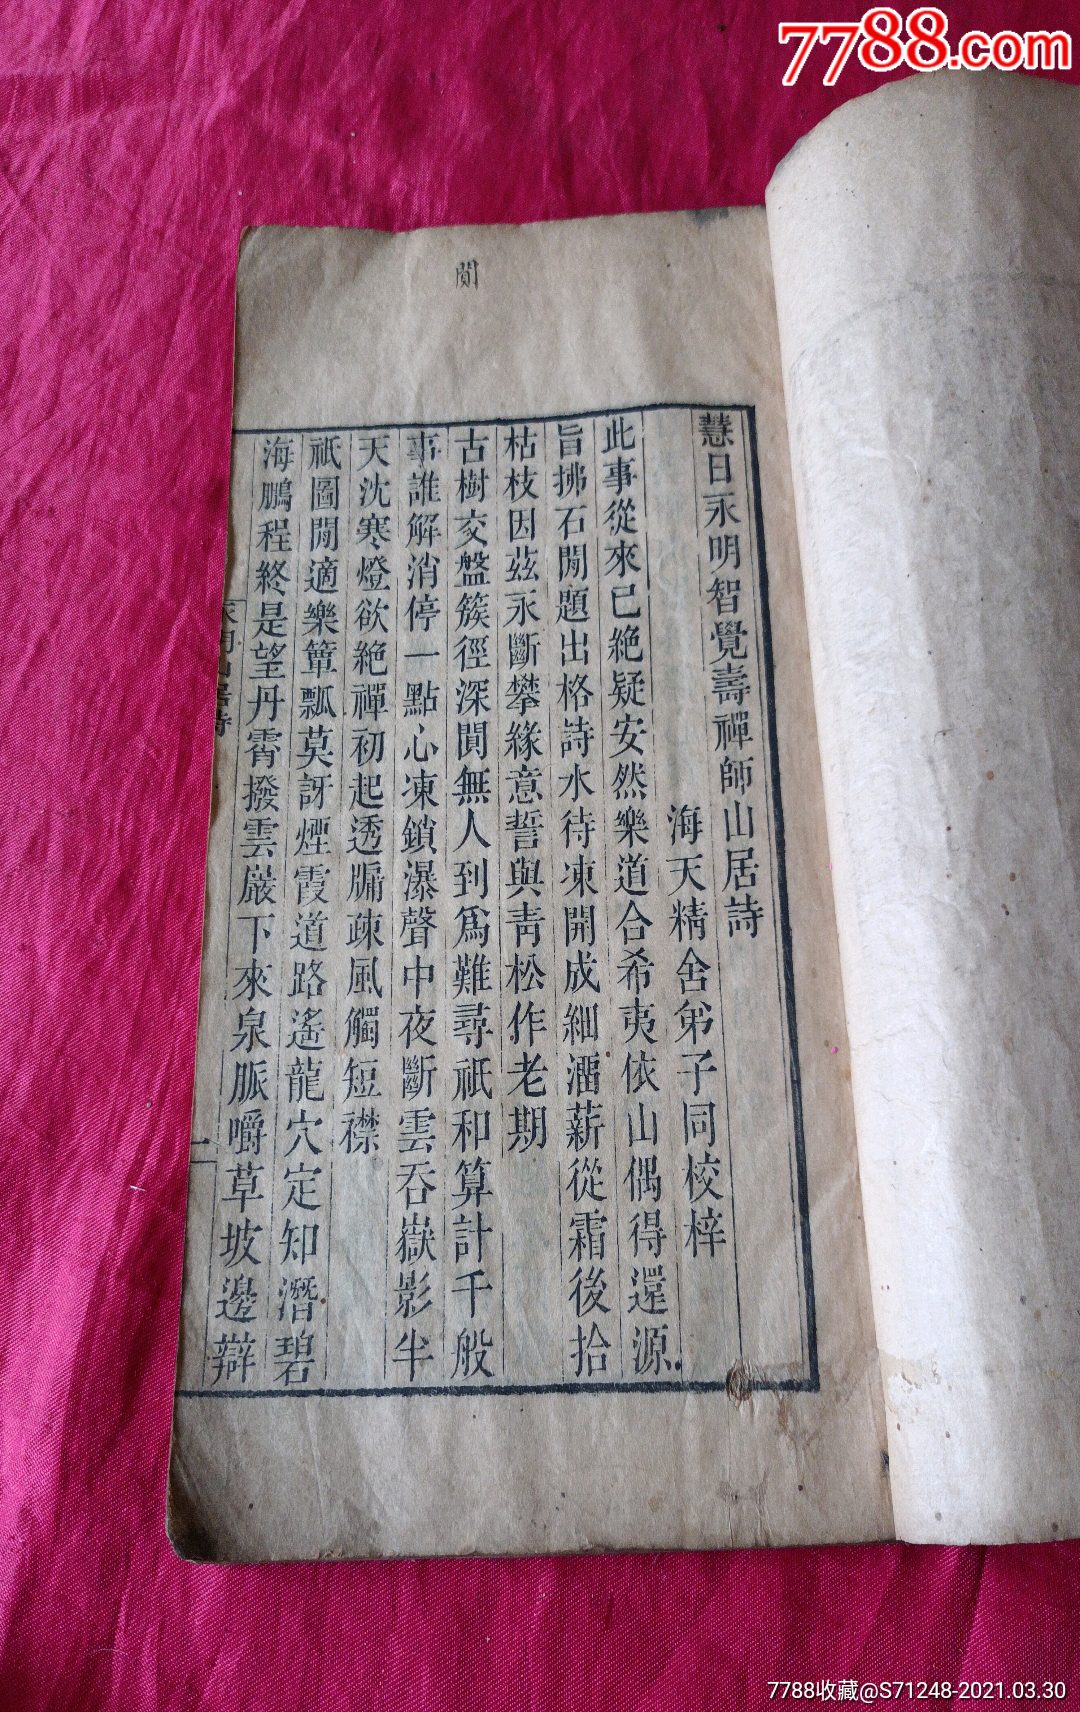 7788.com
閴
慧日永明智覺壽禪師山居詩
海天精舍弟子同校梓
此事從來已絶疑安然樂道合希夷依山偶得還源
旨拂石閒題出格詩水待凍開成細溜薪從霜後拾
枯枝因茲永斷攀緣意誓與青松作老期
古樹交盤簇徑深閴無人到爲難尋祇和算計千般
事誰解消停一點心凍鎖瀑聲中夜斷雲吞嶽影半
天沈寒燈欲絶禪初起透牖疎風觸短襟
祇圖閒適樂簞瓢莫訝煙霞道路遙龍穴定知潛碧
海鵬程終是望丹霄撥雲巖下來泉脈嚼草坡邊辯
永明山居詩
一
7788收藏@S71248-2021.03.30